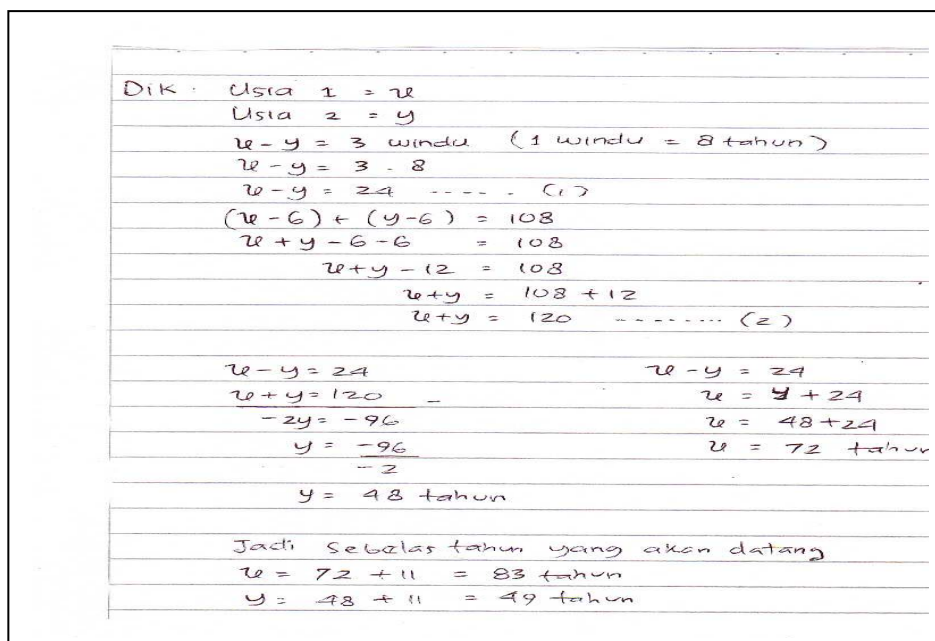 Dik : Usia 1 = x
Usia 2 = y
x - y = 3 windu ( 1 windu = 8 tahun )
x - y = 3 . 8
x - y = 24 ----- . (1)
(x - 6) + (y - 6) = 108
x + y - 6 - 6 = 108
x + y - 12 = 108
x + y = 108 + 12
x + y = 120 --------- (2)
x - y = 24
x + y = 120 -
-2y = -96
y = -96
-2
y = 48 tahun
x - y = 24
x = y + 24
x = 48 + 24
x = 72 tahun
Jadi sebelas tahun yang akan datang
x = 72 + 11 = 83 tahun
y = 48 + 11 = 49 tahun